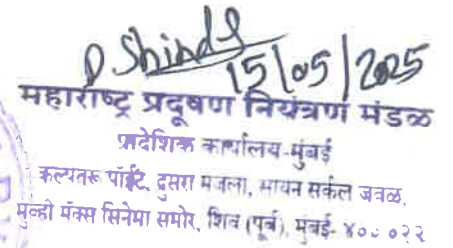 D Shinde
15/05/2025
महाराष्ट्र प्रदूषण नियंत्रण मंडळ
प्रादेशिक कार्यालय-मुंबई
कल्पतरू पॉईंट, दुसरा मजला, सायन सर्कल जवळ,
मुव्ही मॅक्स सिनेमा समोर, शिव (पूर्व), मुंबई- ४०० ०२२